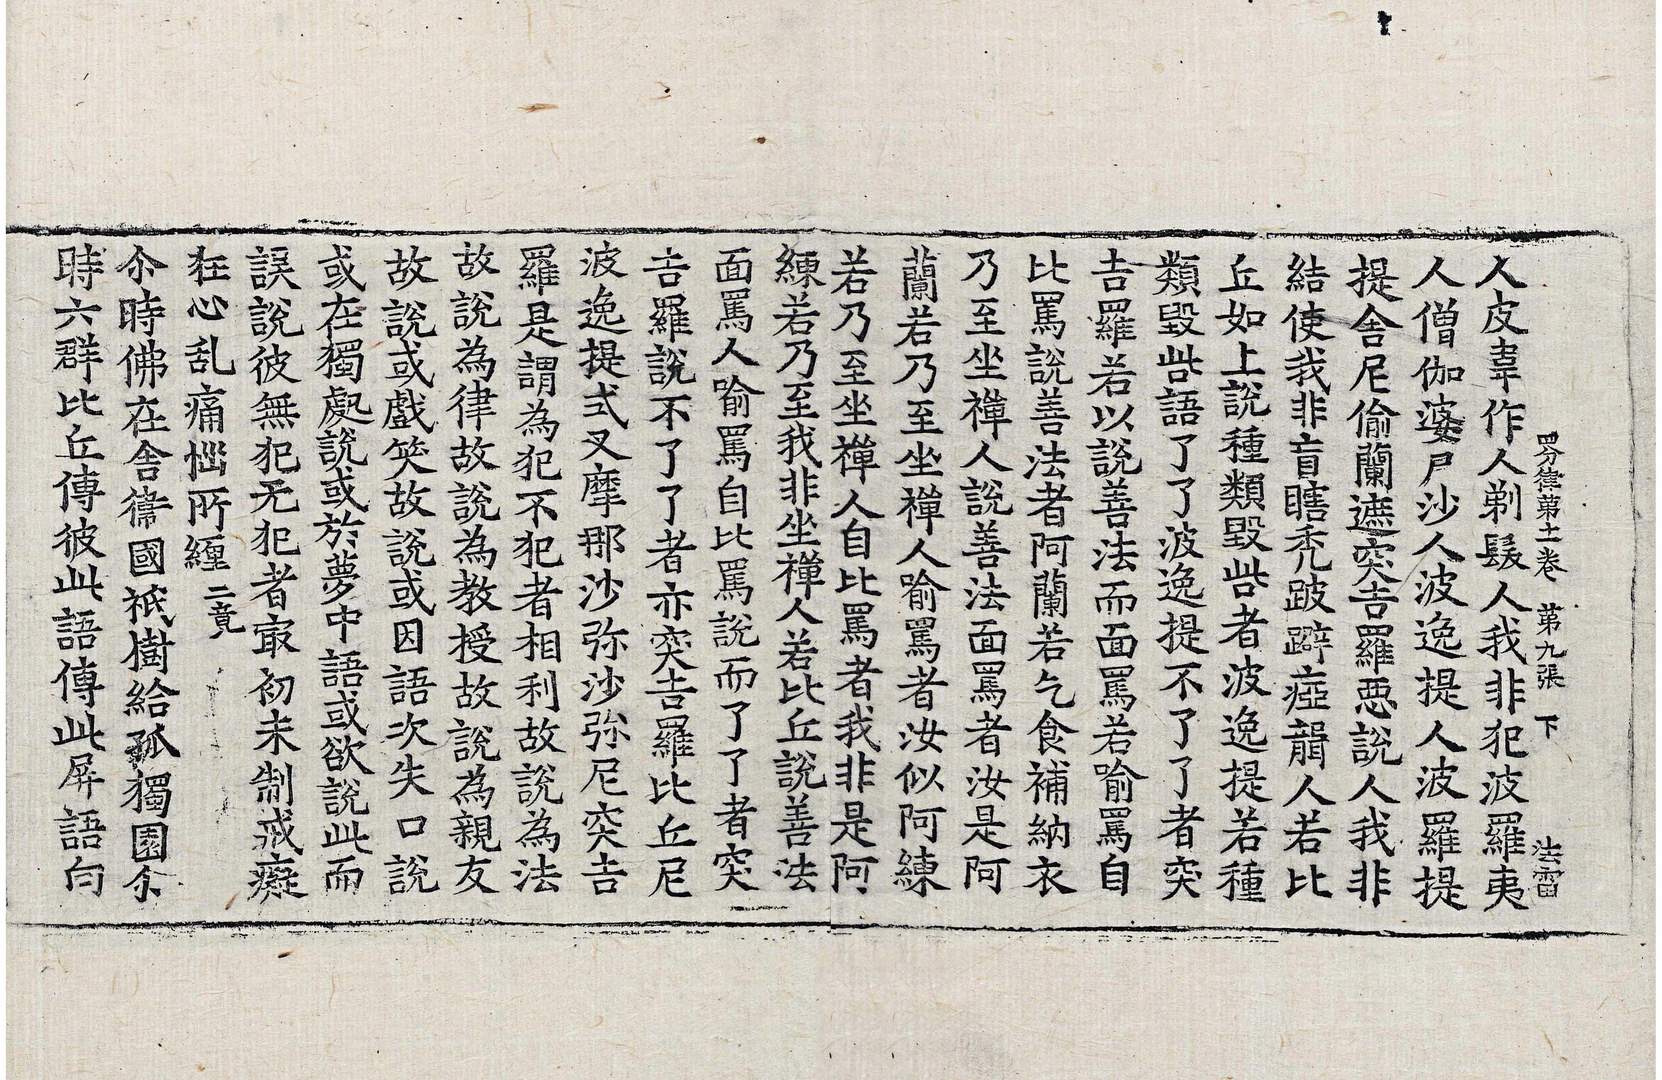 四分律第十一卷　第九張　下　法雷
人皮韋作人剃髮人我非犯波羅夷
人僧伽婆尸沙人波逸提人波羅提
提舍尼偷蘭遮突吉羅惡說人我非
結使我非盲瞎禿跛躃瘂聾人若比
丘如上說種類毀呰者波逸提若種
類毀呰語了了波逸提不了了者突
吉羅若以說善法而面罵若喻罵自
比罵說善法者阿蘭若乞食補納衣
乃至坐禪人說善法面罵者汝是阿
蘭若乃至坐禪人喻罵者汝似阿練
若乃至坐禪人自比罵者我非是阿
練若乃至我非坐禪人若比丘說善法
面罵人喻罵自比罵說而了了者突
吉羅說不了了者亦突吉羅比丘尼
波逸提式叉摩那沙弥沙弥尼突吉
羅是謂為犯不犯者相利故說為法
故說為律故說為教授故說為親友
故說或戲笑故說或因語次失口說
或在獨處說或於夢中語或欲說此而
誤說彼無犯无犯者㝡初未制戒癡
狂心乱痛惱所纏二竟
尒時佛在舍衛國祇樹給孤獨園尒
時六群比丘傳彼此語傳此屏語向